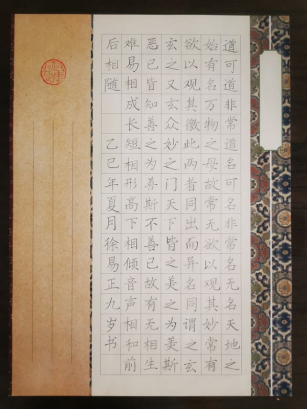 道可道非常道名可名非常名无名天地之
始有名万物之母故常无欲以观其妙常有
欲以观其徼此两者同出而异名同谓之玄
玄之又玄众妙之门天下皆之美之为美斯
恶已皆知善之为善斯不善已故有无相生
难易相成长短相形高下相倾音声相和前
后相随 乙巳年夏月徐易正九岁书